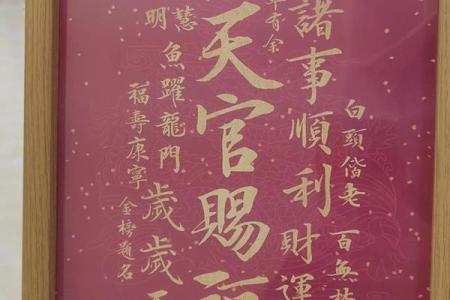 白頭偕老 百無
諸事順利 財運
年有余
天官賜
慧
明
魚躍龍門
歲歲
福壽康寧
金榜題名